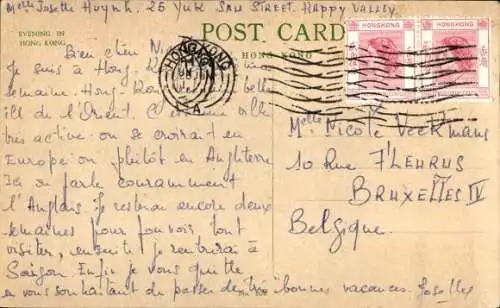 Melle Josette Huynh, 25 Yuk Sau Street. Happy Valley.
EVENING IN
HONG KONG
POST CARD
HONG KONG
HONGKONG
HONGKONG
HONG KONG
A
Bien chère Nic
Je suis à Hong. Ko
semaine. Hong. Kon belle
ille de l'Orient. C'est une ville
très active. on se croirait en
Europe. ou plutôt en Angleterre
Ici on parle couramment
l'Anglais. Je resterai encore deux
semaines pour pouvoir tout
visiter, ensuite je rentrerai à
Saigon. Enfin je vous quitte
en vous souhaitant de passer de très bonnes vacances. Josette
Melle Nicole Veekmans
10 Rue Fleurus
Bruxelles IV
Belgique